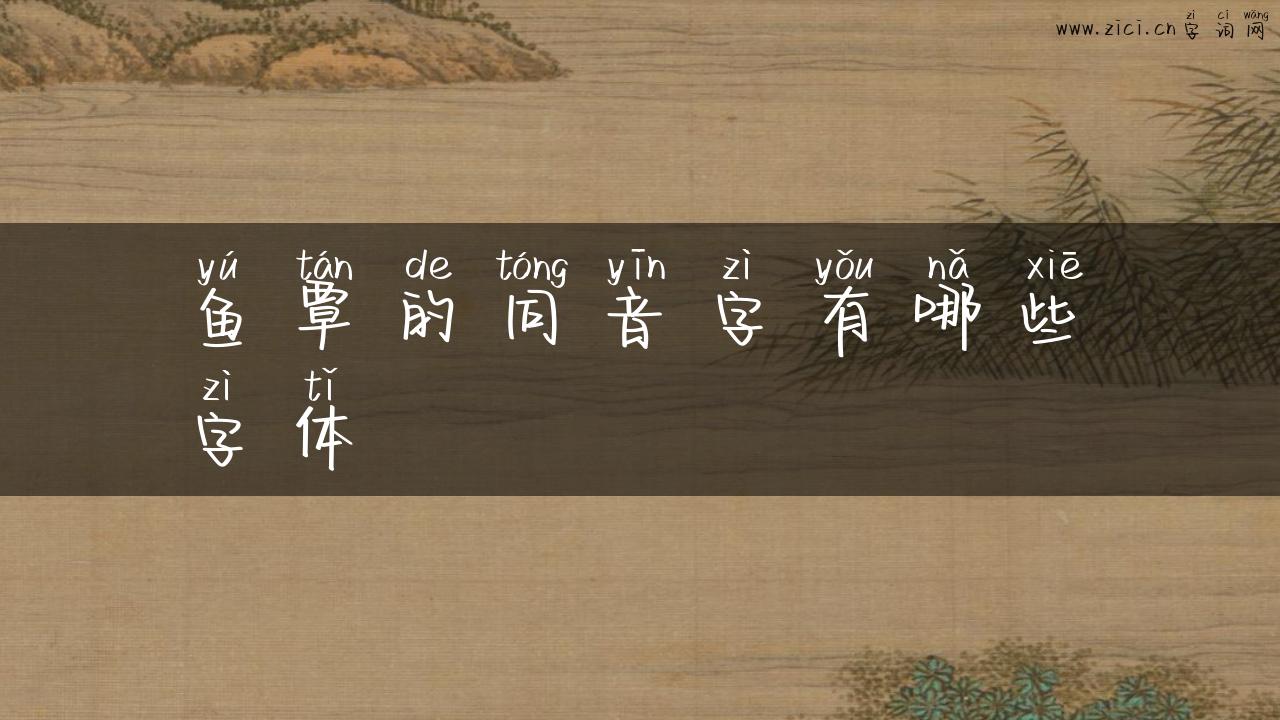 zì cí wǎng
www.zici.cn 字词网
yú tán de tóng yīn zì yǒu nǎ xiē
鱼覃的同音字有哪些
zì tǐ
字体